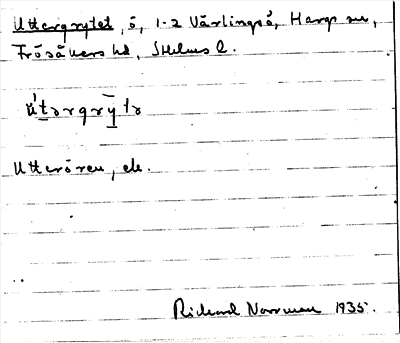 Uttergrytet, ö, 1-2 Värlingsö, Hargs sn,
Frösåkers hd, Sthlms l.
ú̱tərgrȳ̱tə
Utterören, ek.
Rickard Norrman 1935.